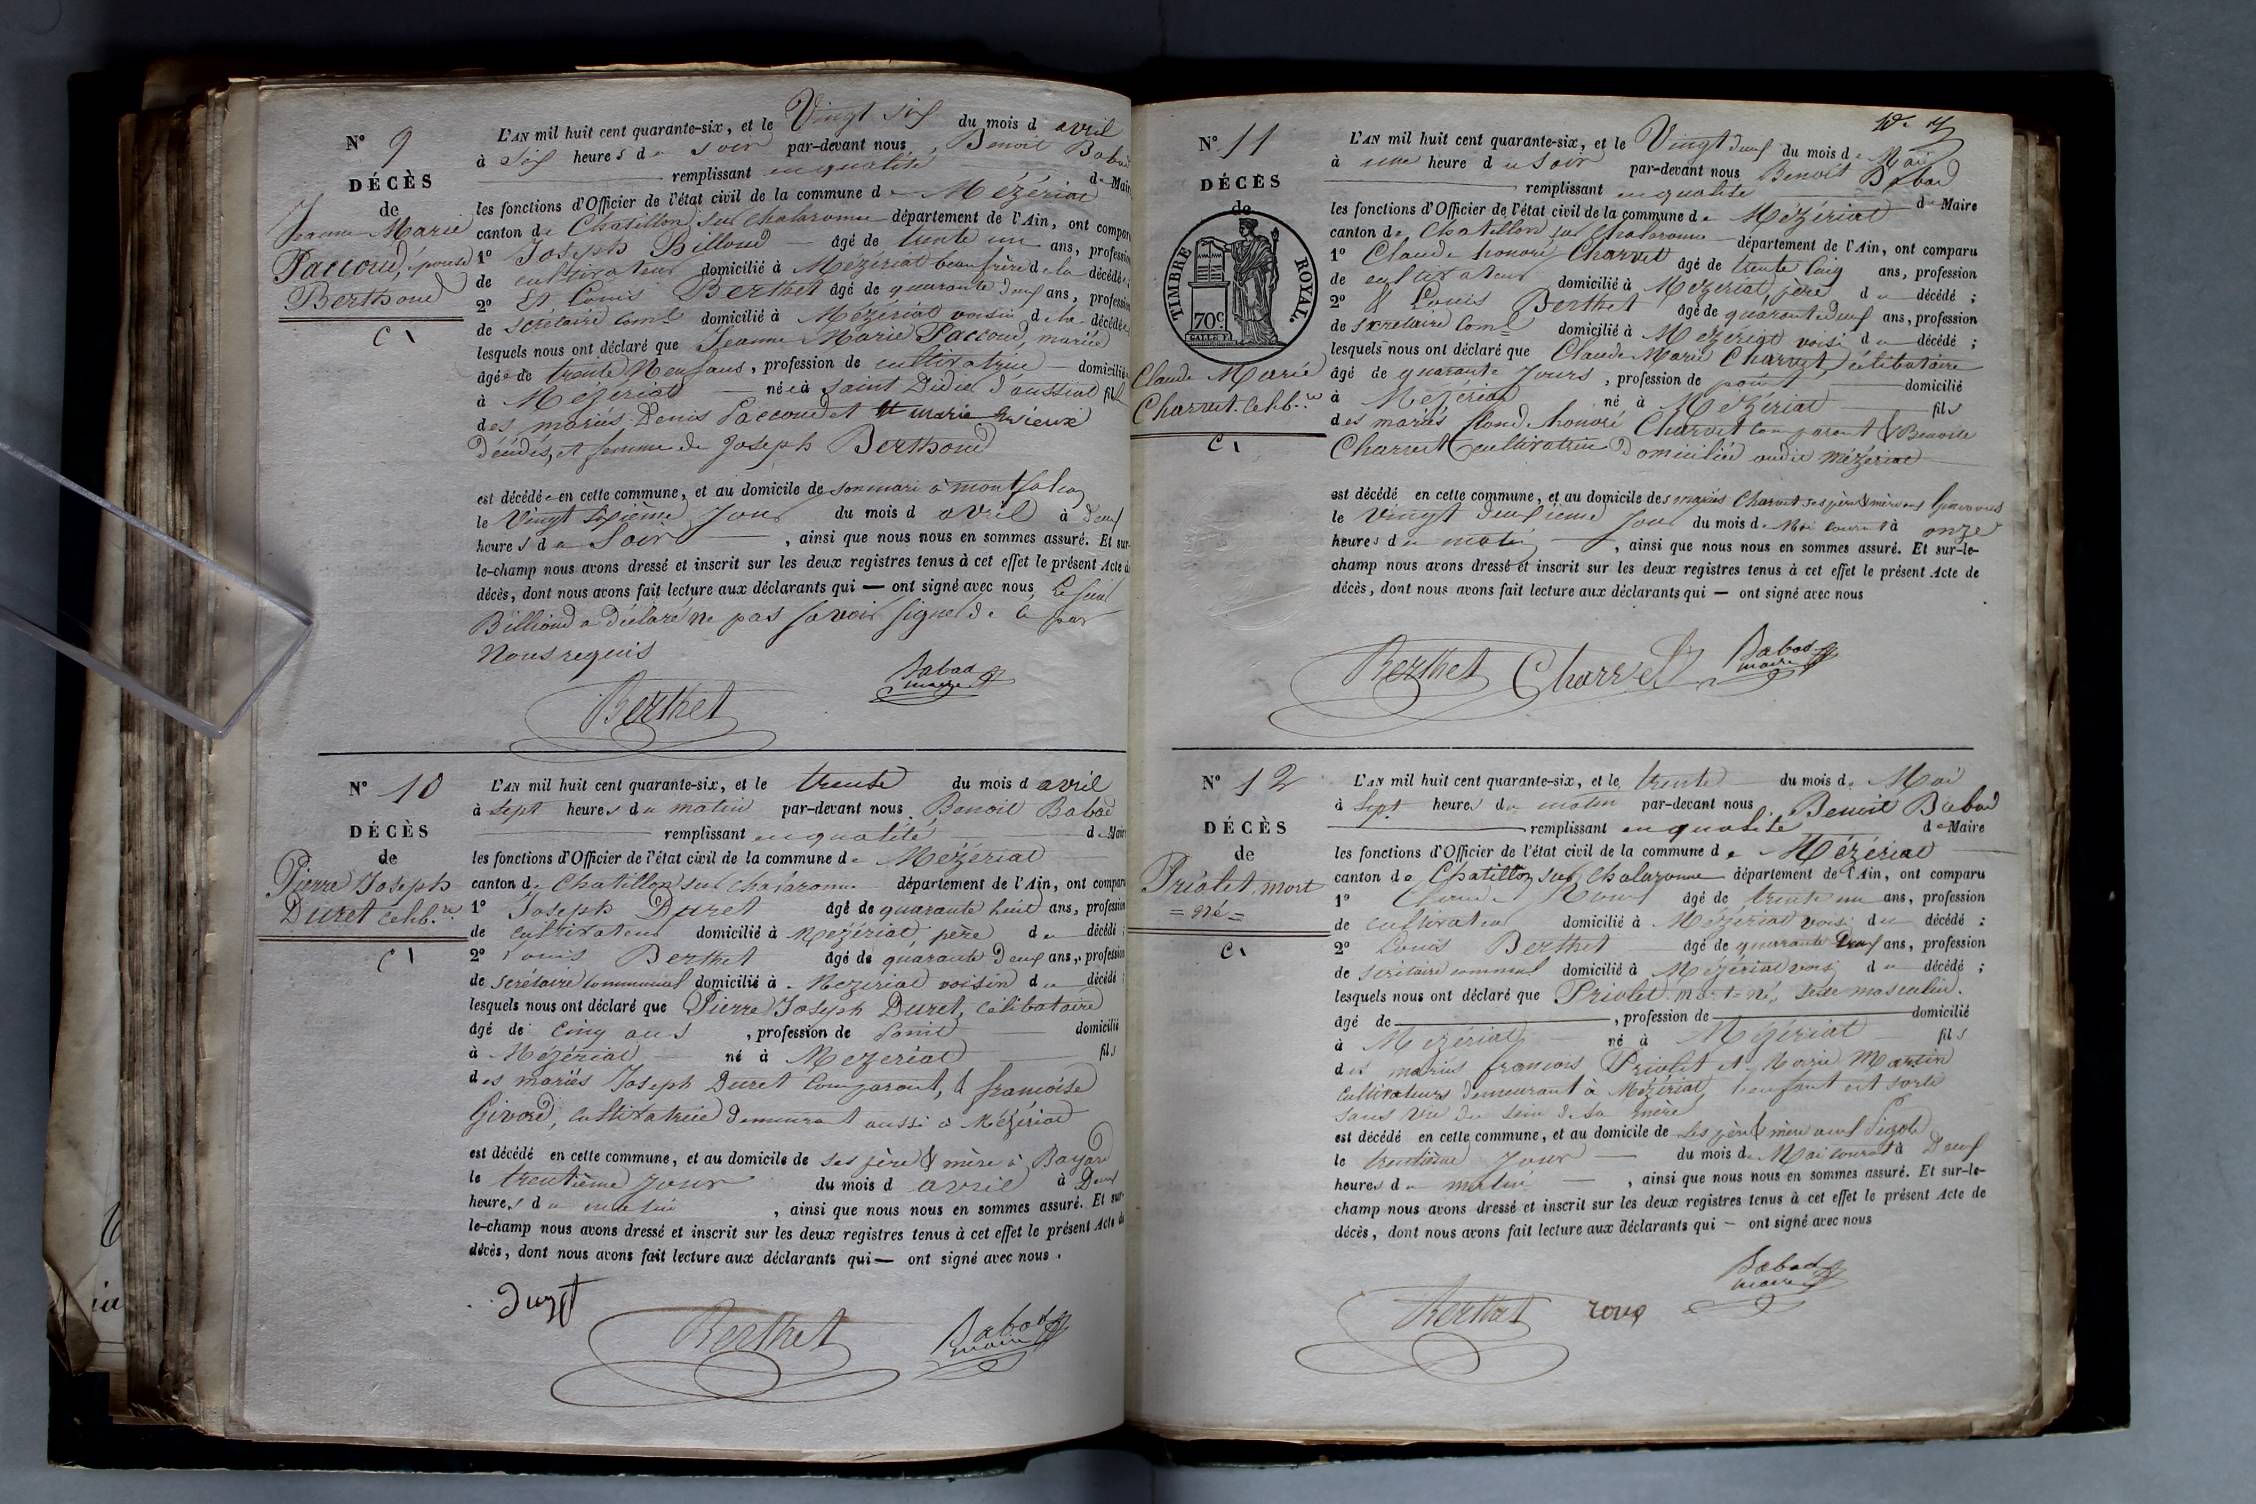 N° 9
DÉCÈS
de
Jeanne Marie
Paccoud, épouse
Berthoud
L'AN mil huit cent quarante-six, et le Vingt six du mois d avril
à Six heures du soir par-devant nous, Benoit Babad
remplissant en qualité de Maire
les fonctions d'Officier de l'état civil de la commune de Mézériat
canton de Chatillon sur Chalaronne département de l'Ain, ont comparu
1° Joseph Billoud âgé de trente un ans, profession
de cultivateur domicilié à Mézériat beau frère de la décédée
2° Et Louis Berthet âgé de quarante deux ans, profession
de secrétaire comal domicilié à Mézériat voisin de la décédée
lesquels nous ont déclaré que Jeanne Marie Paccoud, mariée
âgée de trente Neuf ans, profession de cultivatrice domiciliée
à Mézériat née à Saint Didier d'aussiat fille
des mariés Denis Paccoud et Marie
Décédés, et femme de Joseph Berthoud
est décédée en cette commune, et au domicile de son mari à montfalcon
le Vingt Sixième Jour du mois d avril à deux
heures du Soir, ainsi que nous nous en sommes assuré. Et sur-
le-champ nous avons dressé et inscrit sur les deux registres tenus à cet effet le présent Acte de
décès, dont nous avons fait lecture aux déclarants qui — ont signé avec nous, Le sieur
Billioud a Déclaré ne pas savoir signer de ce par
Nous requis
Babad
maire
Berthet
N° 10
DÉCÈS
de
Pierre Joseph
Duret célib.re
L'AN mil huit cent quarante-six, et le trente du mois d avril
à sept heures du matin par-devant nous Benoit Babad
remplissant en qualité de Maire
les fonctions d'Officier de l'état civil de la commune de Mézériat
canton de Chatillon sur Chalaronne département de l'Ain, ont comparu
1° Joseph Duret âgé de quarante huit ans, profession
de cultivateur domicilié à Mézériat, père du décédé ;
2° Louis Berthet âgé de quarante Deux ans, profession
de secrétaire communal domicilié à Mezériat voisin du décédé ;
lesquels nous ont déclaré que Pierre Joseph Duret, célibataire
âgé de cinq ans, profession de domicilié
à Mézériat né à Mezériat fils
des mariés Joseph Duret Comparant, & françoise
Givord, cultivatrice demeurant aussi à Mézériat
est décédé en cette commune, et au domicile de ses père & mère à Bayard
le trentième Jour du mois d avril à Deux
heures du matin, ainsi que nous nous en sommes assuré. Et sur-
le-champ nous avons dressé et inscrit sur les deux registres tenus à cet effet le présent Acte de
décès, dont nous avons fait lecture aux déclarants qui — ont signé avec nous.
Duret
Berthet
Babad
maire
N° 11
DÉCÈS
de
TIMBRE ROYAL.
70c
Claude Marie
Charvet. Célib.re
L'AN mil huit cent quarante-six, et le Vingt deux du mois de Mai
à une heure du soir par-devant nous Benoit Babad
remplissant en qualité de Maire
les fonctions d'Officier de l'état civil de la commune de Mézériat
canton de Chatillon sur Chalaronne département de l'Ain, ont comparu
1° Claude honoré Charvet âgé de trente Cinq ans, profession
de cultivateur domicilié à Mezériat, père du décédé ;
2° & Louis Berthet âgé de quarante deux ans, profession
de secretaire Comal domicilié à Mezériat voisi du décédé ;
lesquels nous ont déclaré que Claude Marie Charvet, célibataire
âgé de quarante Jours, profession de point domicilié
à Mézériat né à Mézériat fils
des mariés Claude honoré Charvet Comparant & Benoite
Charvet cultivatrice Domiciliée audit Mézériat
est décédé en cette commune, et au domicile des mariés Charvet ses père & mère
le Vingt deuxième Jour du mois de Mai courant à onze
heures du matin, ainsi que nous nous en sommes assuré. Et sur-le-
champ nous avons dressé et inscrit sur les deux registres tenus à cet effet le présent Acte de
décès, dont nous avons fait lecture aux déclarants qui — ont signé avec nous
Berthet Charvet Babad
maire
N° 12
DÉCÈS
de
Priolet, mort
= né =
L'AN mil huit cent quarante-six, et le trente du mois de Mai
à Sept heures du matin par-devant nous, Benoit Babad
remplissant en qualité de Maire
les fonctions d'Officier de l'état civil de la commune de Mézériat
canton de Chatillon sur Chalaronne département de l'Ain, ont comparu
1° Claude âgé de trente un ans, profession
de cultivateur domicilié à Mézériat voisi du décédé ;
2° Louis Berthet âgé de quarante Deux ans, profession
de secrétaire communal domicilié à Mézériat voisi du décédé ;
lesquels nous ont déclaré que Priolet mort-né, sexe masculin.
âgé de, profession de domicilié
à Mézériat né à Mézériat fils
des mariés françois Priolet et Marie Martin
cultivateurs demeurant à Mézériat, l'enfant est sorti
sans vie du sein de sa mère
est décédé en cette commune, et au domicile de ses père & mère aux
le trentième Jour du mois de Mai courant à Deux
heures du matin, ainsi que nous nous en sommes assuré. Et sur-le-
champ nous avons dressé et inscrit sur les deux registres tenus à cet effet le présent Acte de
décès, dont nous avons fait lecture aux déclarants qui — ont signé avec nous
Babad
maire
Berthet